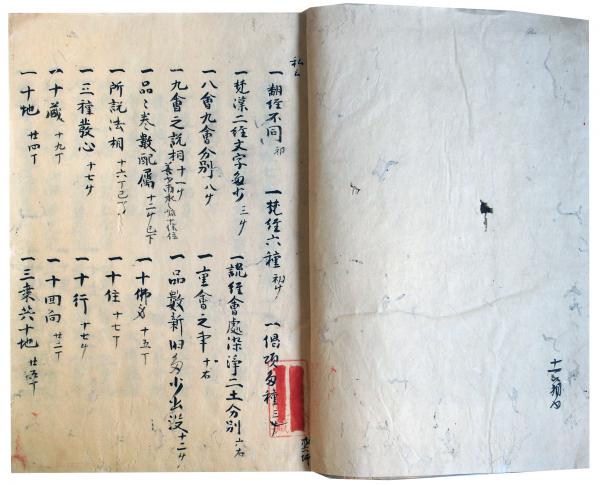 一翻経不同 初 一梵経六種 初ウ 一偈頌多種 三ウ
一梵漢二経文字多少 三ウ 一説経會處染淨二土分別 六右
一八會九會分別 八ウ 一重會之事 十右
一九會之説相 十一ウ 一品數新旧多少出没 十二ウ
一品〻巻數配属 十二ウ已下 一十佛名 十五丁
一所説法相 十六丁已下 一十住 十七丁
一三種發心 十七ウ 一十行 十七ウ
一十藏 十九丁 一十回向 廿二丁
一十地 廿四丁 一三乗共十地 廿五丁